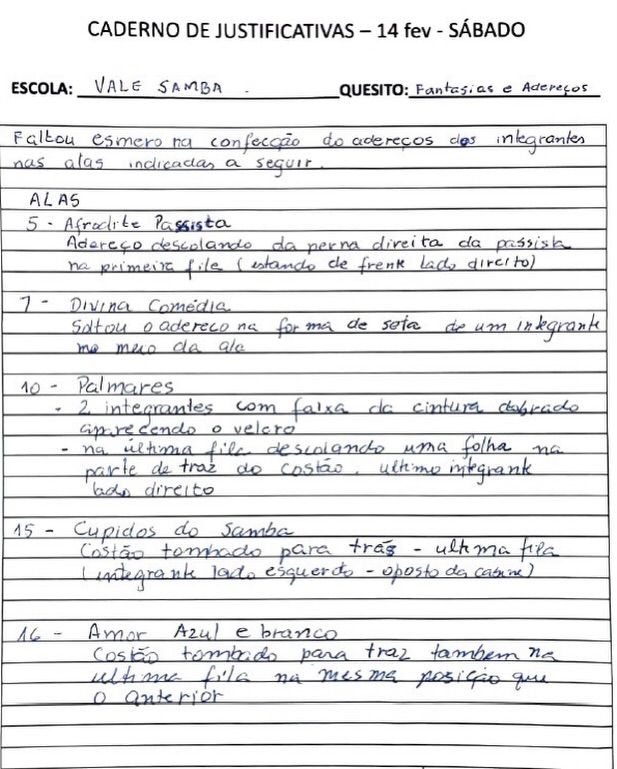 CADERNO DE JUSTIFICATIVAS – 14 fev - SÁBADO
ESCOLA: VALE SAMBA . QUESITO: Fantasias e Adereços
Faltou esmero na confecção do adereços dos integrantes
nas alas indicadas a seguir.
ALAS
5 - Afrodite Passista
Adereço descolando da perna direita da passista
na primeira fila (estando de frente lado direito)
7 - Divina Comédia
Soltou o adereco na forma de seta de um integrante
no meio da ala
10 - Palmares
- 2 integrantes com faixa da cintura dobrado
aparecendo o velcro
- na última fila descolando uma folha na
parte de traz do costão. ultimo integrante
lado direito
15 - Cupidos do Samba
Costão tombado para trás - ultima fila
(integrante lado esquerdo - oposto da cabine)
16 - Amor Azul e branco
Costão tombado para traz tambem na
ultima fila na mesma posição que
o anterior